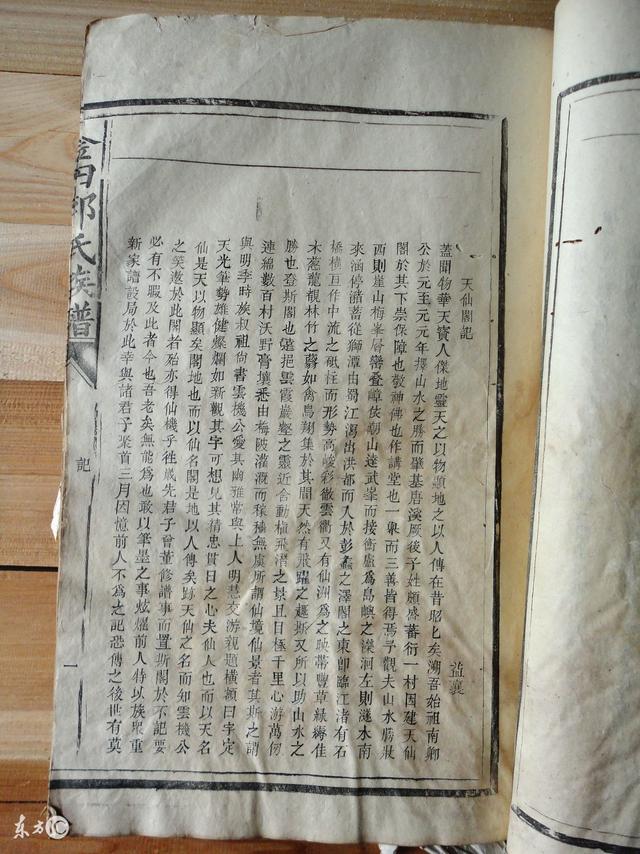 天仙閣記
益襄
蓋聞物華天寶人傑地靈天之以物顯地之以人傳在昔昭匕矣溯吾始祖南卿
公於元至元元年擇山水之勝而肇基唐溪厥後子姓頗盛蕃衍一村因建天仙
閣於其下崇保障也敬神佛也作講堂也一舉而三善皆得焉予觀夫山水勝狀
西則崖山梅峯層巒疊嶂使朝山達武峯而接衡廬為島嶼之濚洄左則濨水南
來涵停瀦蓄從獅潭由蜀江瀉出洪都而入於彭蠡之澤閣之東卽臨江渚有石
橋橫亘作中流之砥柱而形勢高峻彩徹雲衢又有仙洲為之映帶豐草綠縟佳
木葱蘢覩林竹之蓊如禽鳥翔集於其間天然有飛躍之趣斯又所以助山水之
勝也登斯閣也遠挹雲霞巖壑之靈近含動植飛潛之景且目極千里心游萬仞
連綿數百村沃野膏壤悉由梅陂灌溉而稼穡無虞所謂仙境仙景者其斯之謂
與明季時族叔祖尚書雲機公愛其幽雅常與上人明慧交游親題橫額曰字定
天光筆勢雄健燦爛如新觀其字可想見其精忠貫日之心夫仙人也而以天名
仙是天以物顯矣閣地也而以仙名閣是地以人傳矣跡天仙之名而知雲機公
之笑遨於此閣者殆亦得仙機乎徃歲先君子曾董修譜事而置斯閣於不記要
必有不暇及此者今也吾老矣無能為也敢以筆墨之事炫燿前人特以族衆重
新家譜設局於此幸與諸君子聚首三月因憶前人不為之記恐傳之後世有莫
郭氏族譜
記
一
东方